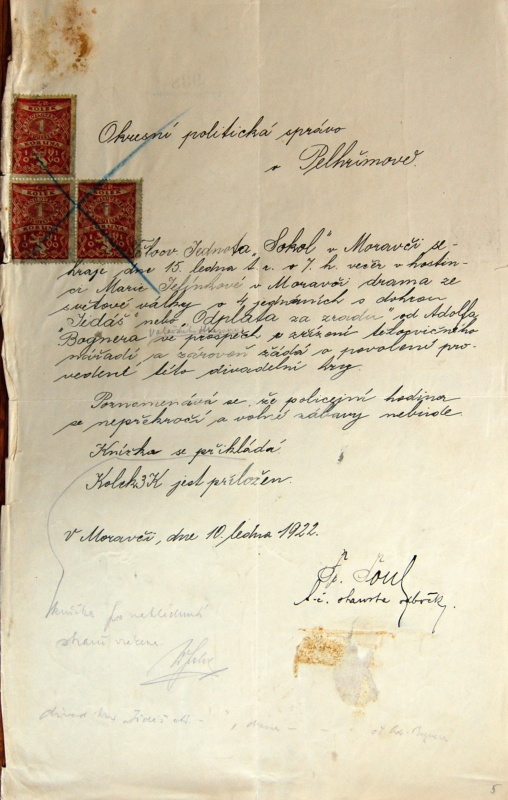 Okresní politická správa
v Pelhřimově.
Jednota „Sokol" v Moravči se-
hraje dne 15. ledna t. r. o 7. h. večer v hostin-
ci Marie v Moravči drama ze
světové války o 4 jednáních s dohrou
"Jidáš" neb „Odplata za zradu" od Adolfa
Bognera ve prospěch zřízení tělocvičného
nářadí a zároveň žádá o povolení pro-
vedení této divadelní hry.
Poznamenává se, že policejní hodina
se nepřekročí a volné zábavy nebude.
Knížka se přikládá
Kolek 3K jest přiložen.
V Moravči, dne 10. ledna 1922.
KOLEK
1
KORUNA
KOLEK
1
KORUNA
KOLEK
1
KORUNA
5